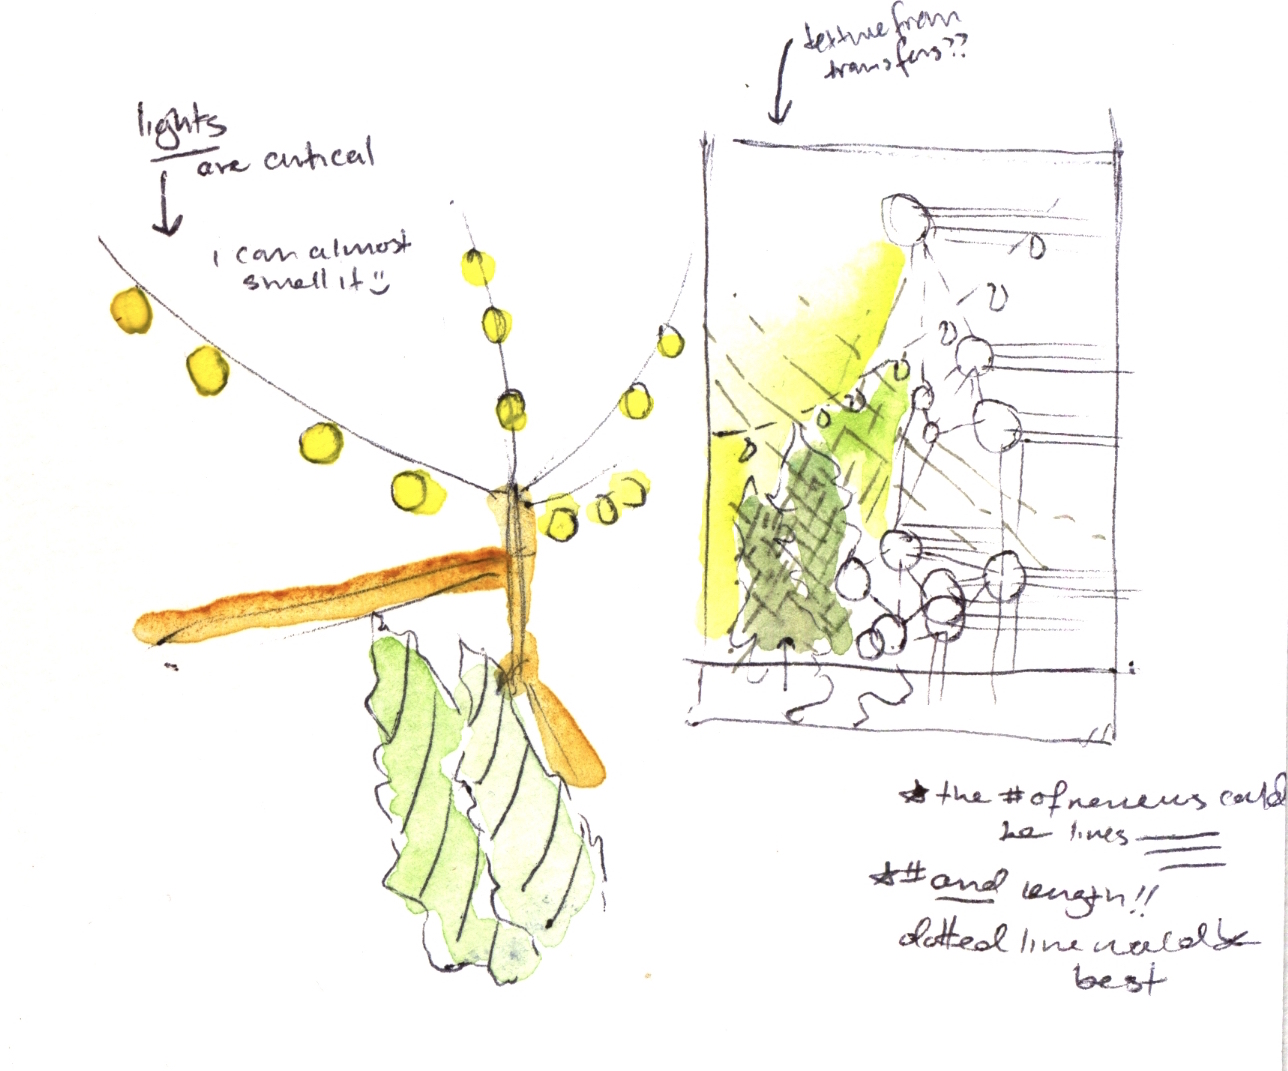 lights
are critical
i can almost
smell it
texture from
transfers??
* the # of reviews could
be lines
* # and length!!
dotted line would be
best